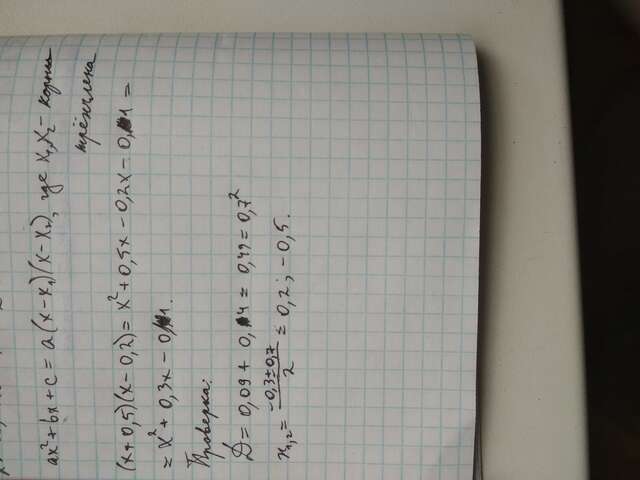 ax²+bx+c = a(x-x₁)(x-x₂), где x₁,x₂ - корни
трёхчлена
(x+0,5)(x-0,2) = x²+0,5x-0,2x-0,1 =
= x²+0,3x-0,1.
Проверка:
D = 0,09 + 0,4 = 0,49 = 0,7²
x₁,₂ = (-0,3±0,7)/2 = 0,2; -0,5.